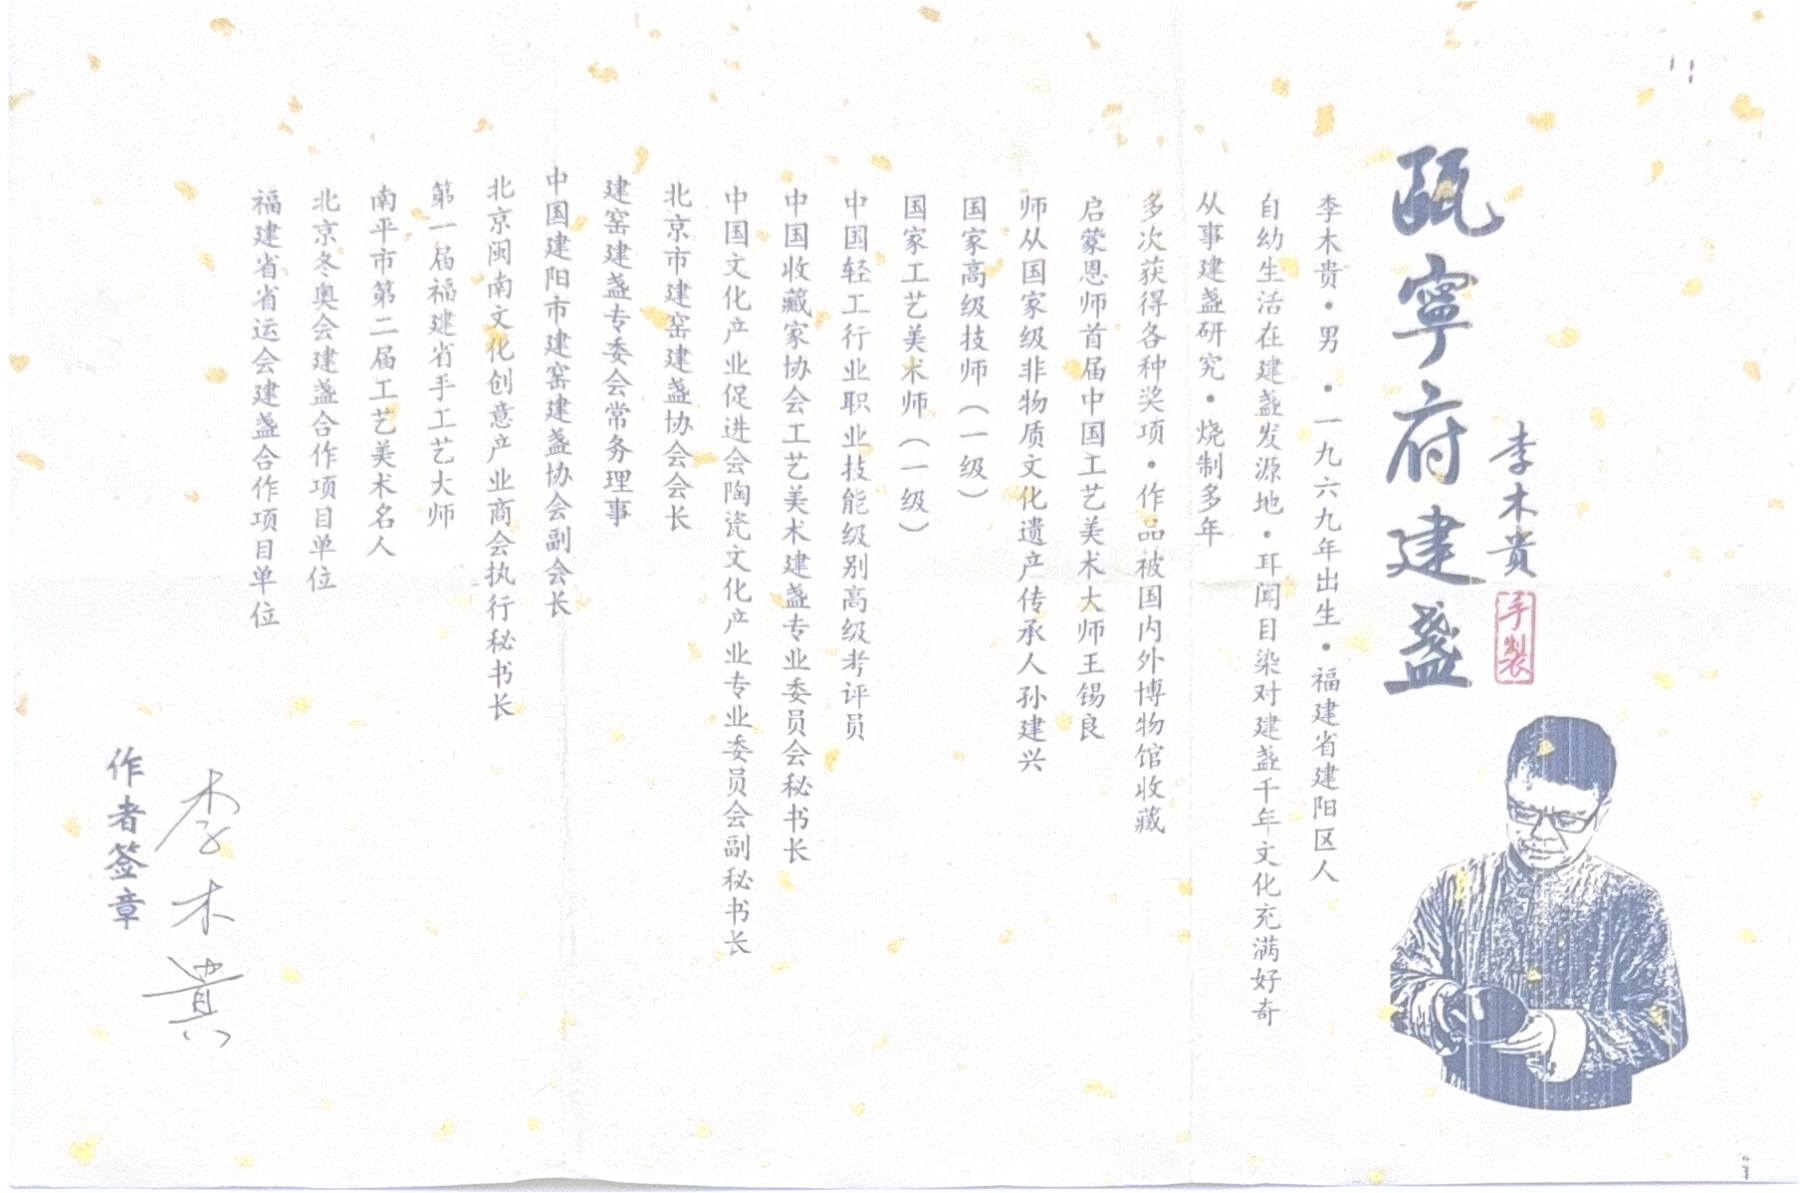 李木貴
手製
瓯寧府建盏
李木贵·男·一九六九年出生·福建省建阳区人
自幼生活在建盏发源地·耳闻目染对建盏千年文化充满好奇
从事建盏研究·烧制多年
多次获得各种奖项·作品被国内外博物馆收藏
启蒙恩师首届中国工艺美术大师王锡良
师从国家级非物质文化遗产传承人孙建兴
国家高级技师（一级）
国家工艺美术师（一级）
中国轻工行业职业技能级别高级考评员
中国收藏家协会工艺美术建盏专业委员会秘书长
中国文化产业促进会陶瓷文化产业专业委员会副秘书长
北京市建窑建盏协会会长
建窑建盏专委会常务理事
中国建阳市建窑建盏协会副会长
北京闽南文化创意产业商会执行秘书长
第一届福建省手工艺大师
南平市第二届工艺美术名人
北京冬奥会建盏合作项目单位
福建省省运会建盏合作项目单位
李木贵
作者签章